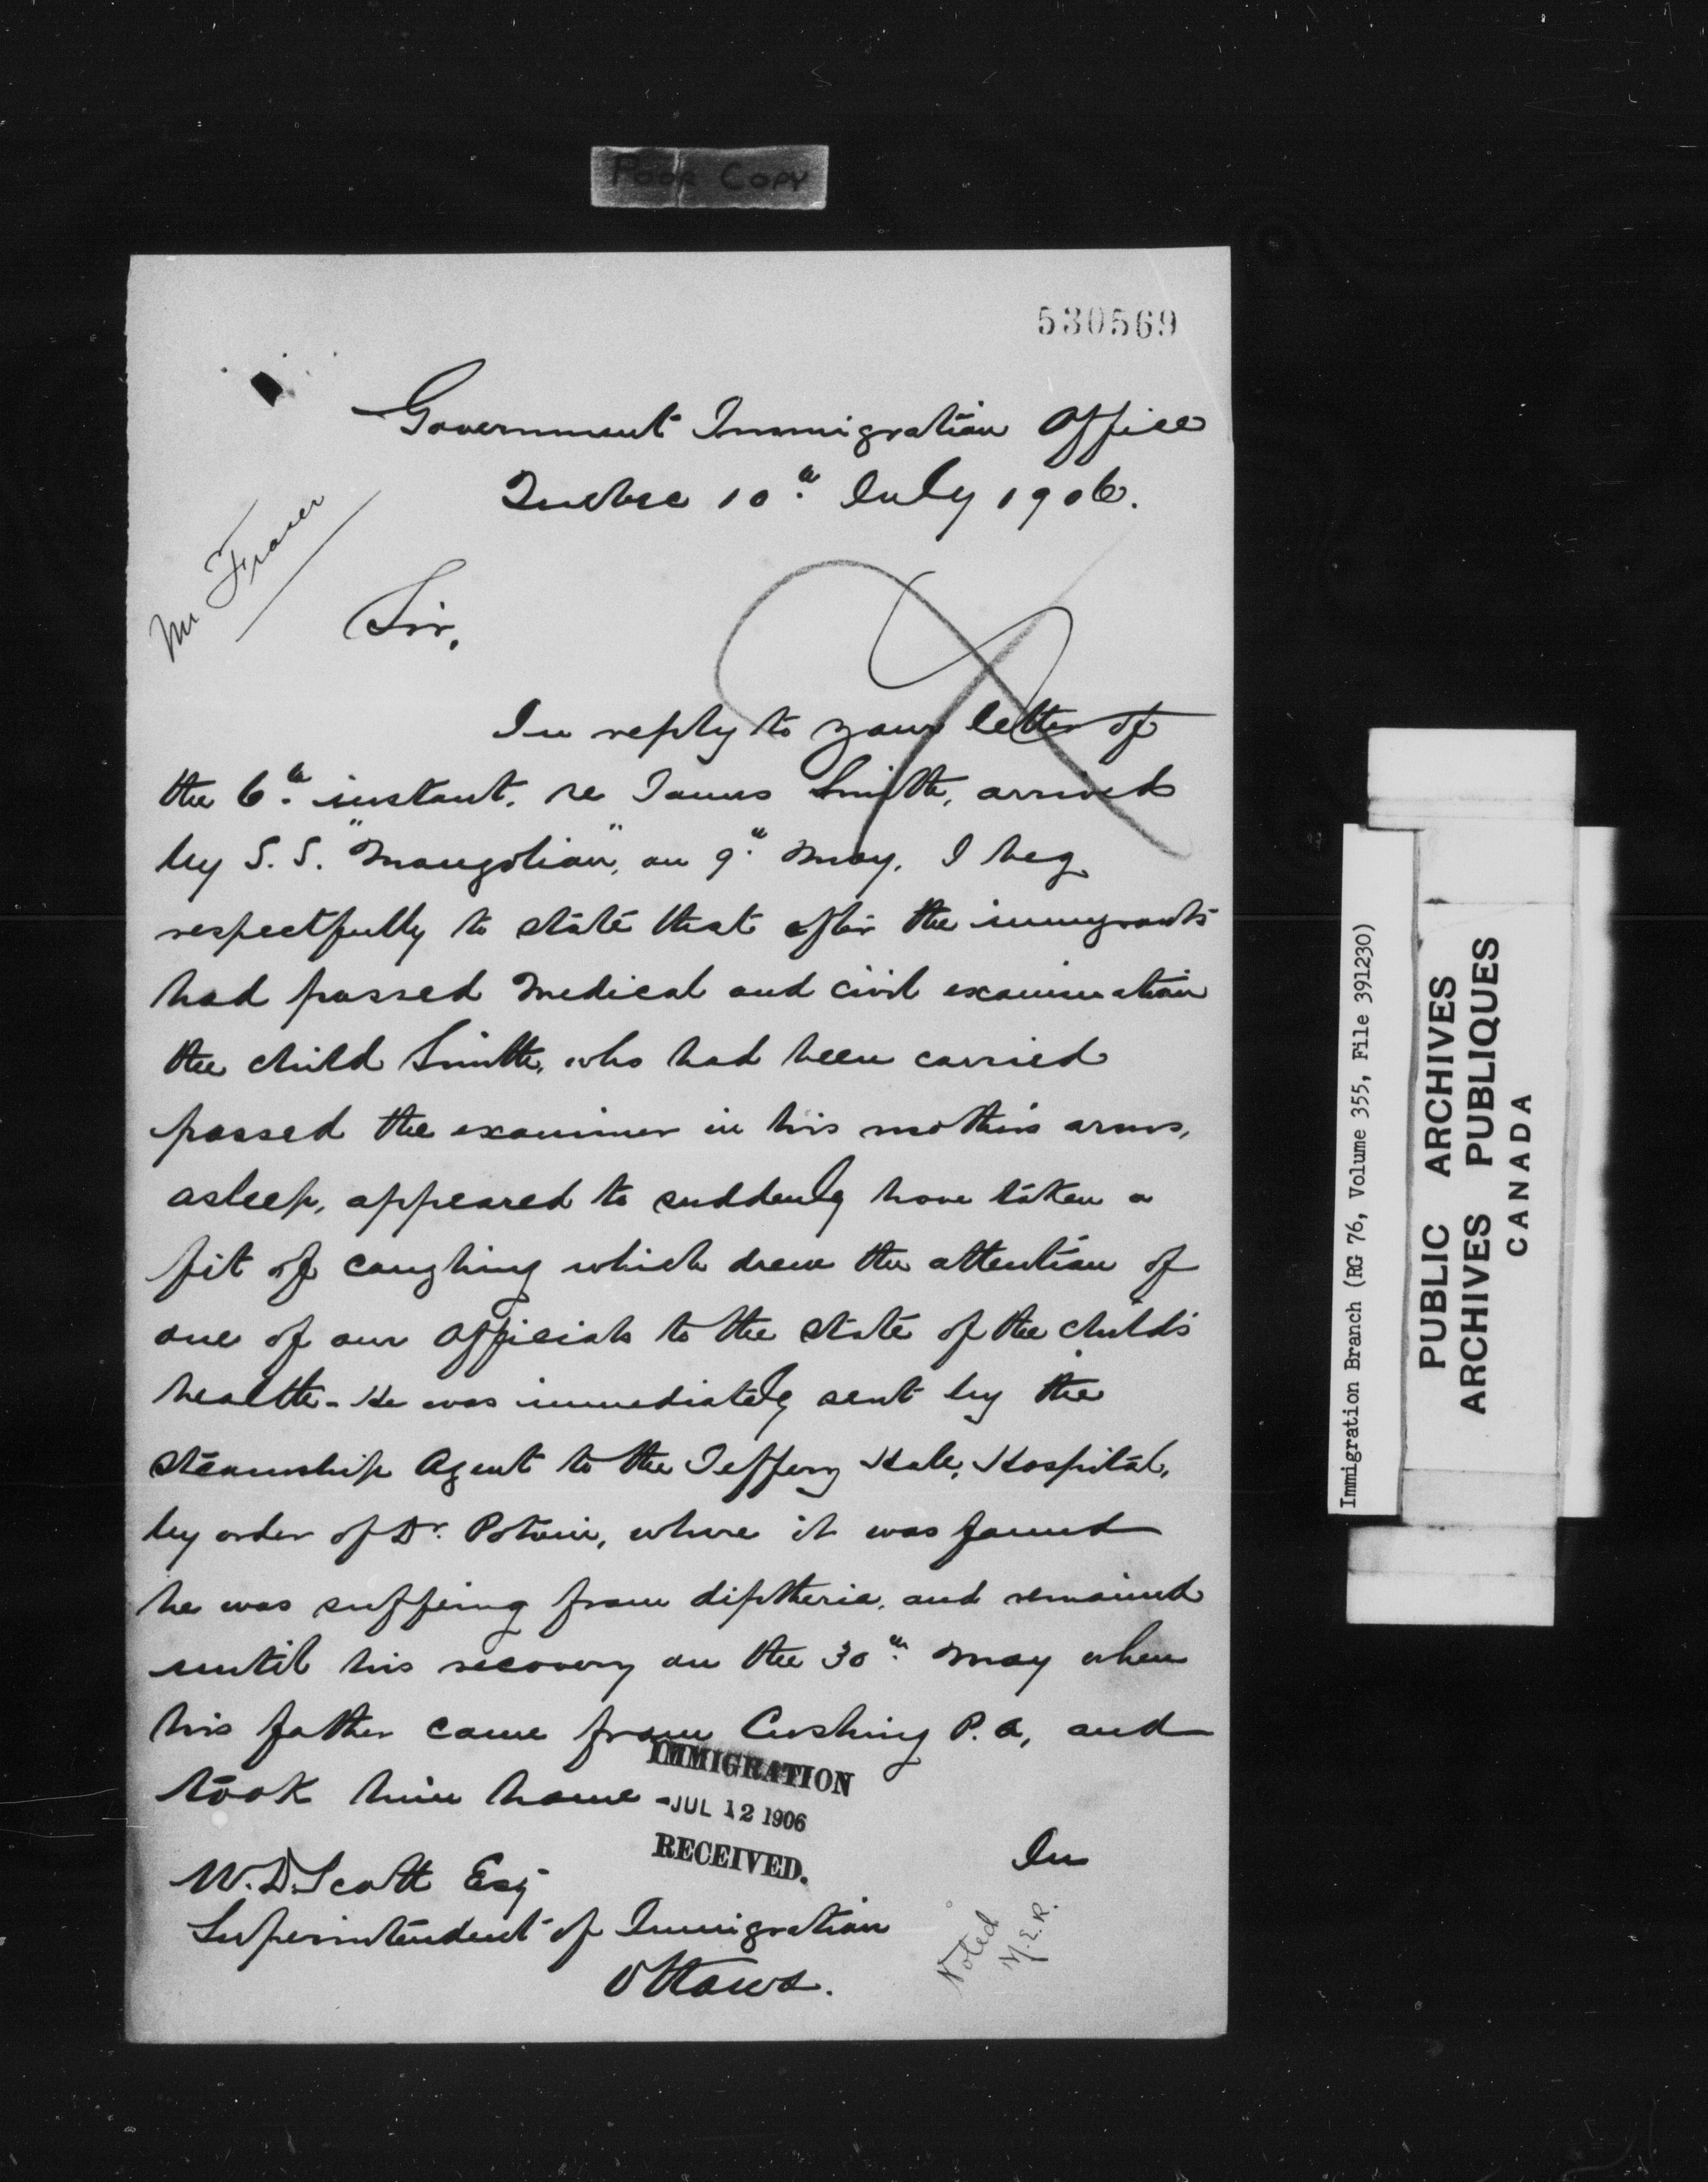 Poor Copy
530569
Government Immigration Office
Quebec 10th July 1906.
Mr Fraser
Sir,
In reply to your letter of
the 6th instant. re James Smith, arrived
by S. S. "Mongolian", on 9th May, I beg
respectfully to state that after the immigrants
had passed Medical and civil examination
the child Smith, who had been carried
passed the examiner in his mothers arms,
asleep, appeared to suddenly have taken a
fit of coughing which drew the attention of
one of our Officials to the state of the child's
health - He was immediately sent by the
Steamship Agent to the Jeffery Hale, Hospital,
by order of Dr. Potvin, where it was found
he was suffering from diptheria, and remained
until his recovery on the 30th May when
his father came from Cushing P.Q, and
took him home -
IMMIGRATION
JUL 12 1906
RECEIVED.
In
W. D. Scott Esq
Superintendent of Immigration
Ottawa.
Noted
Immigration Branch (RG 76, Volume 355, File 391230)
PUBLIC ARCHIVES
ARCHIVES PUBLIQUES
CANADA